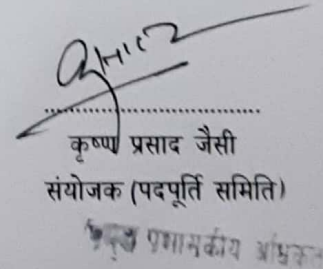 कृष्ण प्रसाद जैसी
संयोजक (पदपूर्ति समिति)
प्रमुख प्रशासकीय अधिकृत